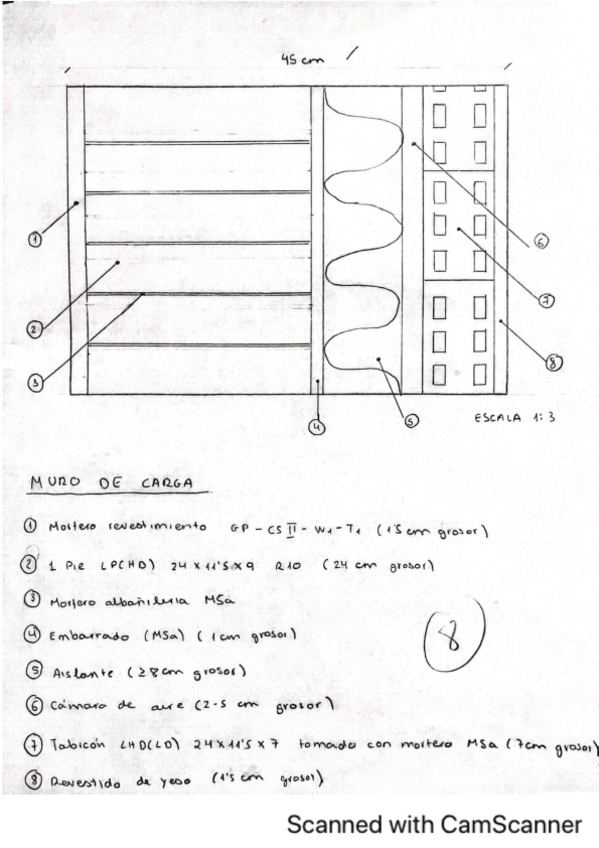 45 cm
1
2
3
4
5
6
7
8
ESCALA 1:3
MURO DE CARGA
1 Mortero revestimiento GP - CS II - W1 - T1 (1'5 cm grosor)
2 1 Pie LP(HD) 24 x 11'5 x 9 R10 (24 cm grosor)
3 Mortero albañileria M5a
4 Embarrado (M5a) (1 cm grosor)
5 Aislante (≥8 cm grosor)
6 Cámara de aire (2-5 cm grosor)
7 Tabicón LHD(LD) 24 x 11'5 x 7 tomado con mortero M5a (7cm grosor)
8 Revestido de yeso (1'5 cm grosor)
8
Scanned with CamScanner